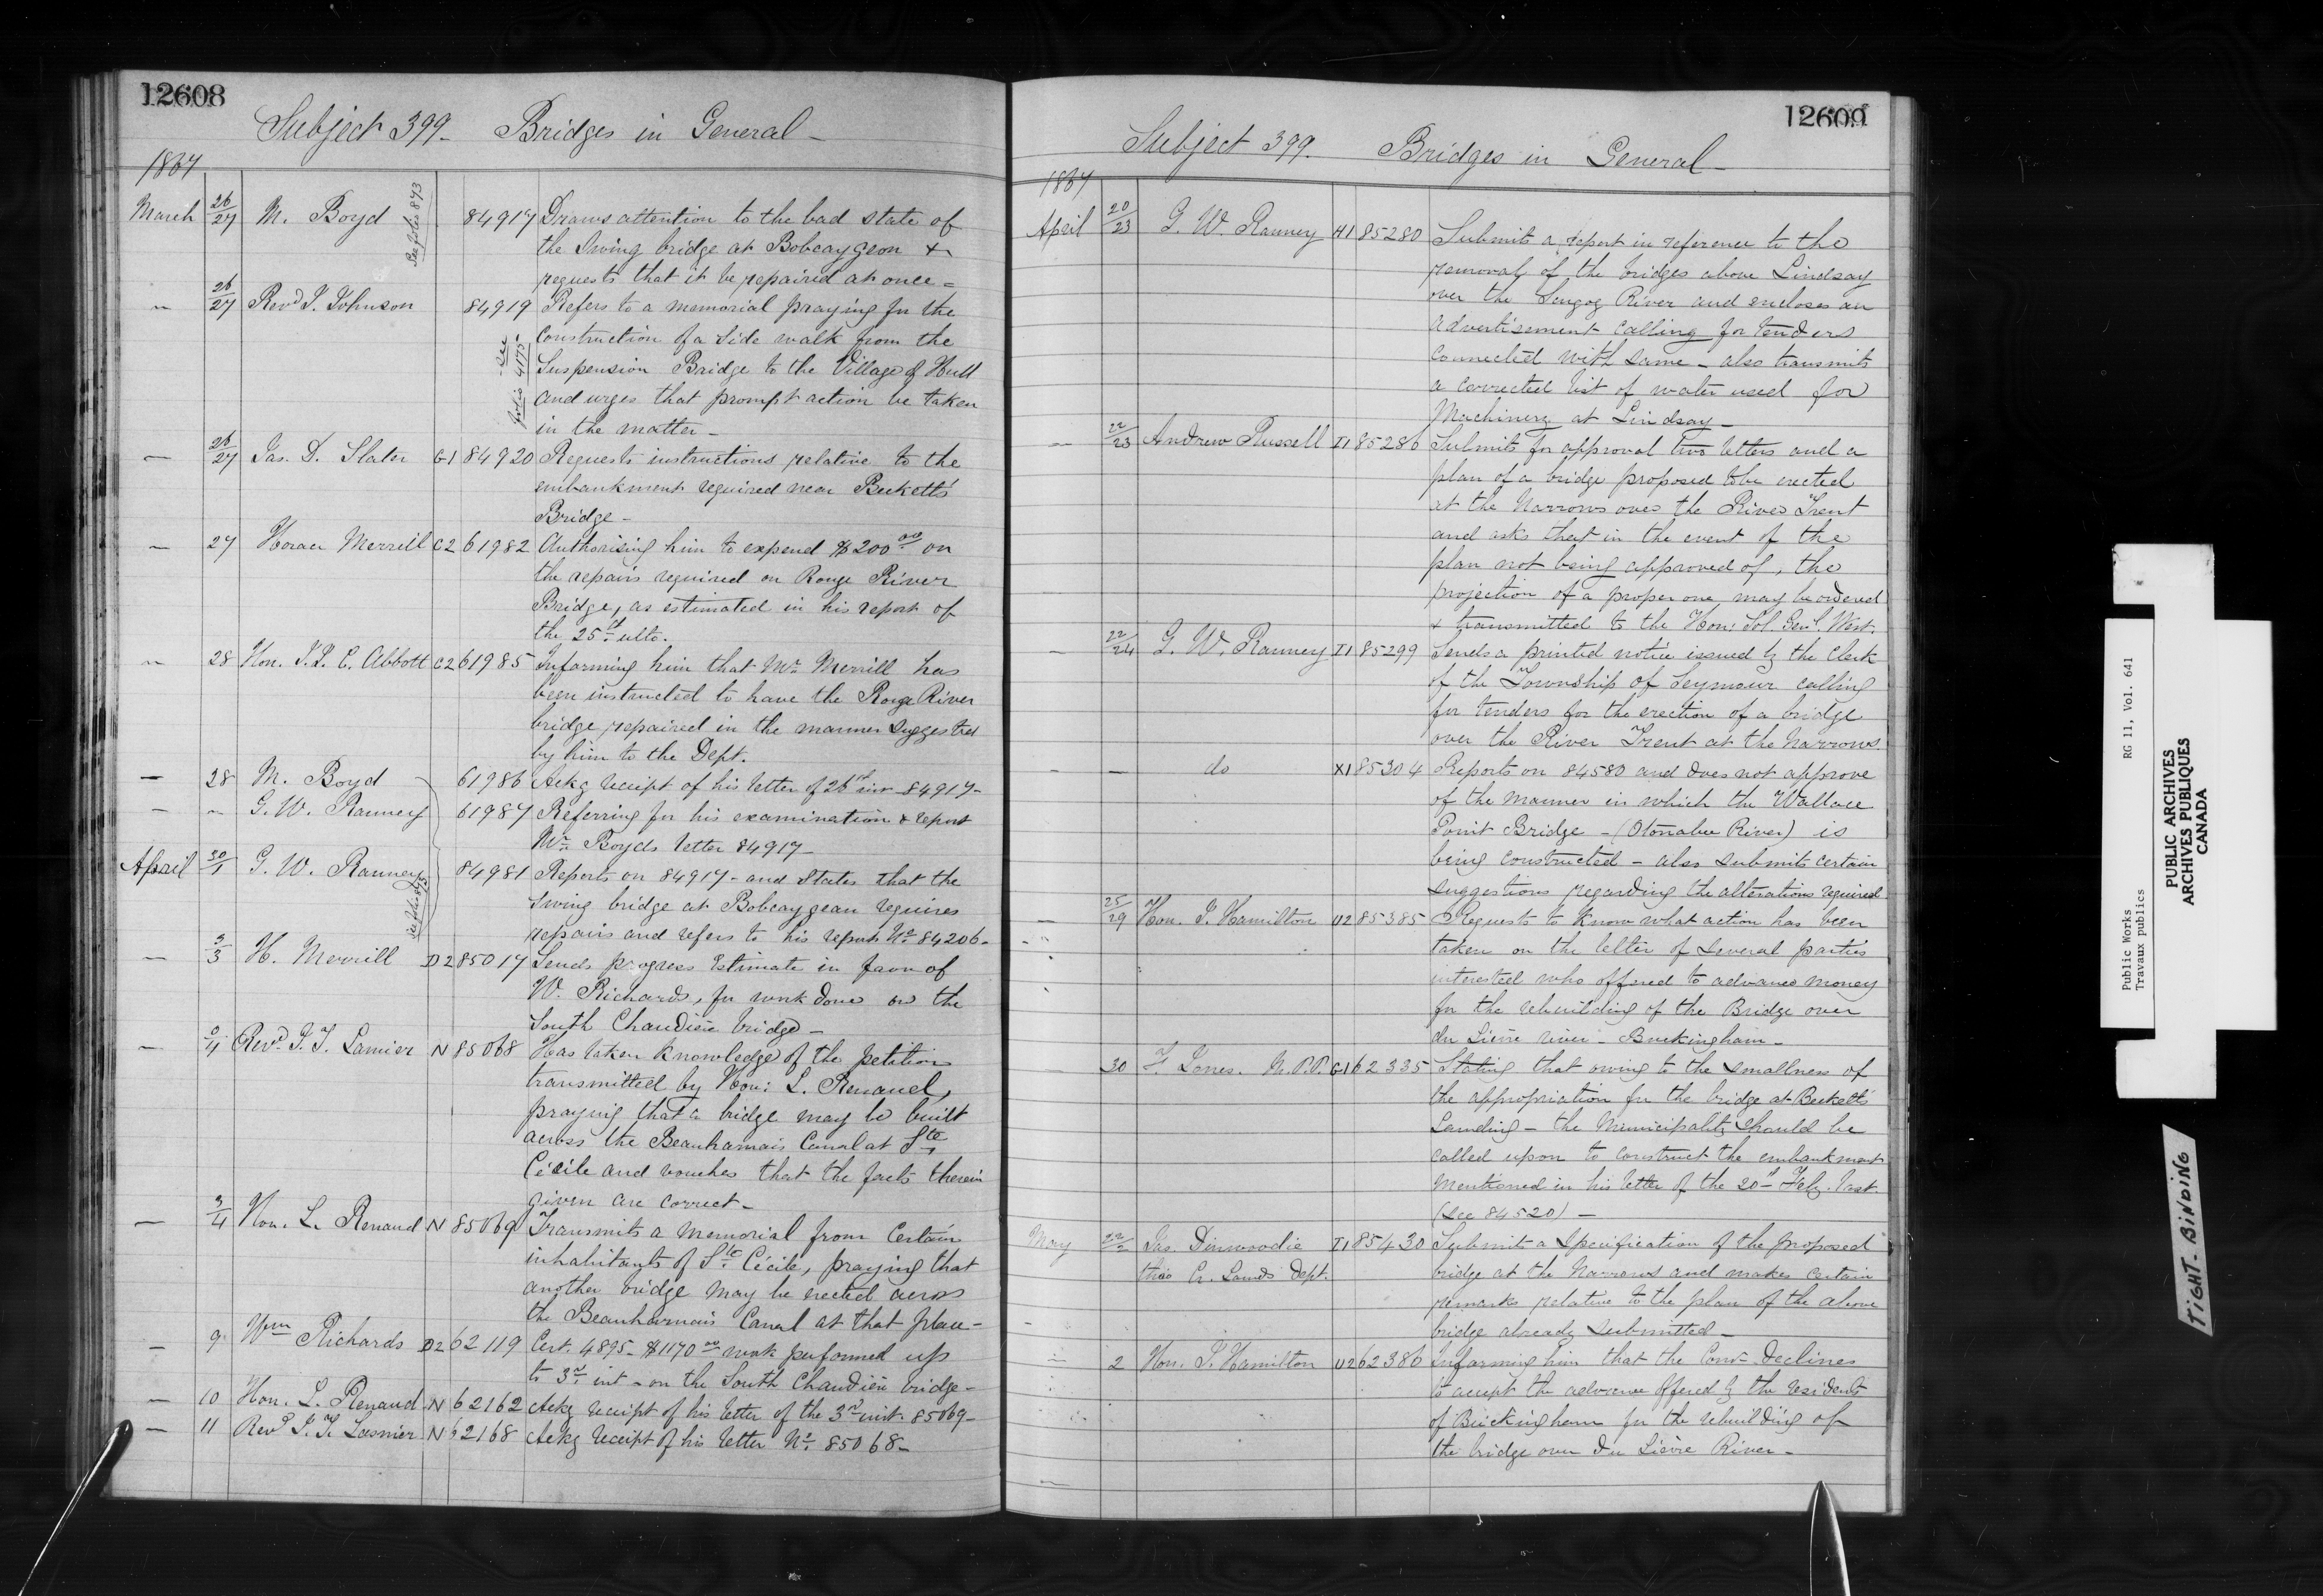 12608
Subject 399 - Bridges in General -
1867
March 26/27 M. Boyd See folio 893 84917 Draws attention to the bad state of
the Swing bridge at Bobcaygeon &
requests that it be repaired at once =
" 26/27 Revd J. Johnson 84919 Refers to a memorial praying for the
construction of a side walk from the
see folio 4175 Suspension Bridge to the Village of Hull
and urges that prompt action be taken
in the matter -
- 26/27 Jas. D. Slater G1 84920 Requests instructions relative to the
embankment required near Beckett's
Bridge -
- 27 Horace Merrill C2 61982 Authorising him to expend $200 00 on
the repairs required on Rouge River
Bridge, as estimated in his report of
the 25th ulto.
" 28 Hon. J. J. C. Abbott C2 61985 Informing him that Mr Merrill has
been instructed to have the Rouge River
bridge repaired in the manner suggested
by him to the Dept.
- 28 M. Boyd 61986 Ackg receipt of his letter of 26th inst 84917-
- " G. W. Ranney 61987 Referring for his examination & report
Mr Boyds letter 84917-
April 30/1 G. W. Ranney See folio 893 84981 Reports on 84917- and States that the
swing bridge at Bobcaygeon requires
repairs and refers to his report No 84206-
- 3/3 H. Merrill D2 85017 Sends progress Estimate in favor of
W. Richards, for work done on the
South Chaudière bridge -
- /4 Revd J. T. Lasnier N 85068 Has taken knowledge of the petition
transmitted by Hon: L. Renaud,
praying that a bridge may be built
across the Beauharnais Canal at Ste
Cécile and vouches that the facts therein
given are correct -
- 3/4 Hon. L. Renaud N 85069 Transmits a memorial from Certain
inhabitants of Ste Cécile, praying that
another bridge may be erected across
the Beauharnais Canal at that place -
- 9 Wm Richards D2 62119 Cert. 4895- $1170 00 work performed up
to 3rd inst - on the South Chaudière bridge -
- 10 Hon. L. Renaud N 62162 Ackg receipt of his letter of the 3rd inst. 85069-
- 11 Revd J. T. Lasnier N 62168 Ackg receipt of his letter No 85068-
12609
Subject 399. Bridges in General -
1867
April 20/23 G. W. Ranney H1 85280 Submits a report in reference to the
removal of the bridges above Lindsay
over the Scugog River and encloses an
advertisement calling for tenders
connected with same - also transmits
a corrected list of water used for
Machinery at Lindsay -
- 22/23 Andrew Russell I1 85286 Submits for approval two letters and a
plan of a bridge proposed to be erected
at the Narrows over the River Trent
and asks that in the event of the
plan not being approved of, the
projection of a proper one may be ordered
& transmitted to the Hon: Sol. Genl. West.
- 22/24 G. W. Ranney I1 85299 Sends a printed notice issued by the Clerk
of the Township of Seymour calling
for tenders for the erection of a bridge
over the River Trent at the Narrows.
- - do X1 85304 Reports on 84580 and does not approve
of the manner in which the Wallace
Point Bridge - (Otonabee River) is
being constructed - also submits certain
suggestions regarding the alterations required
- 25/29 Hon. J. Hamilton U2 85385 Requests to know what action has been
taken on the letter of several parties
interested who offered to advance money
for the rebuilding of the Bridge over
du Lièvre river - Buckingham -
30 F. Jones. M.P.P. G1 62335 Stating that owing to the smallness of
the appropriation for the bridge at Beckett's
Landing - the Municipality should be
called upon to construct the embankment
mentioned in his letter of the 20th Feby. last.
(See 84520) -
May 22/2 Jas. Dinwoodie I1 85430 Submits a Specification of the proposed
thro Cr. Lands Dept. bridge at the Narrows and makes certain
remarks relative to the plan of the above
bridge already submitted -
- 2 Hon. J. Hamilton U2 62386 Informing him that the Comr declines
to accept the advance offered by the residents
of Buckingham for the rebuilding of
the bridge over du Lièvre River -
Public Works RG 11, Vol. 641
Travaux publics
PUBLIC ARCHIVES
ARCHIVES PUBLIQUES
CANADA
TIGHT-BINDING